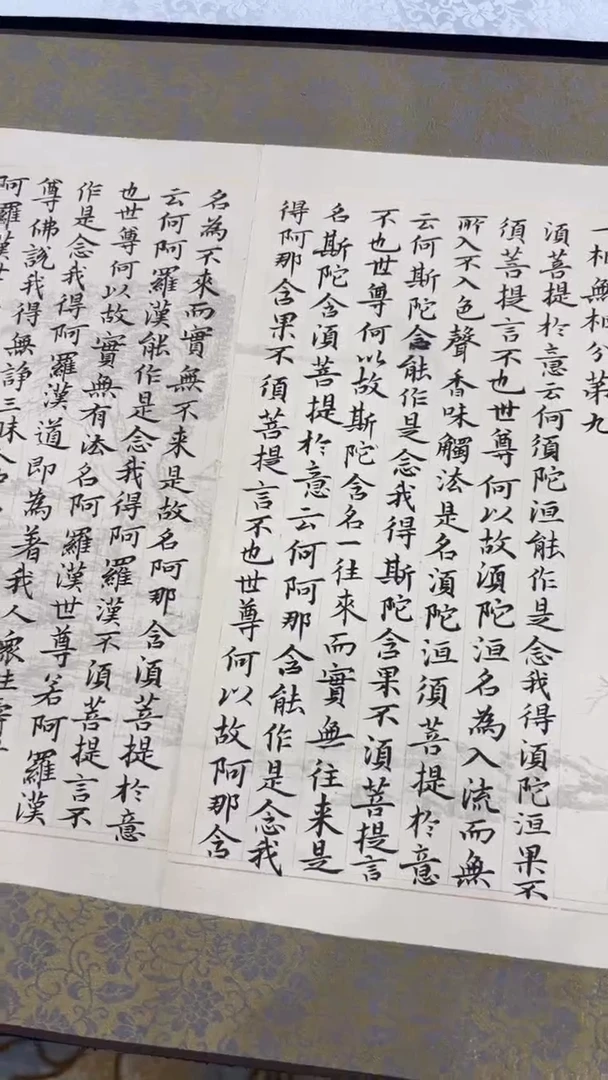 一相無相分第九
須菩提於意云何須陀洹能作是念我得須陀洹果不
須菩提言不也世尊何以故須陀洹名為入流而無
所入不入色聲香味觸法是名須陀洹須菩提於意
云何斯陀含能作是念我得斯陀含果不須菩提言
不也世尊何以故斯陀含名一往來而實無往来是
名斯陀含須菩提於意云何阿那含能作是念我
得阿那含果不須菩提言不也世尊何以故阿那含
名為不來而實無不来是故名阿那含須菩提於意
云何阿羅漢能作是念我得阿羅漢不須菩提言不
也世尊何以故實無有法名阿羅漢世尊若阿羅漢
作是念我得阿羅漢道即為著我人衆生
尊佛說我得無諍三昧人
阿羅漢世